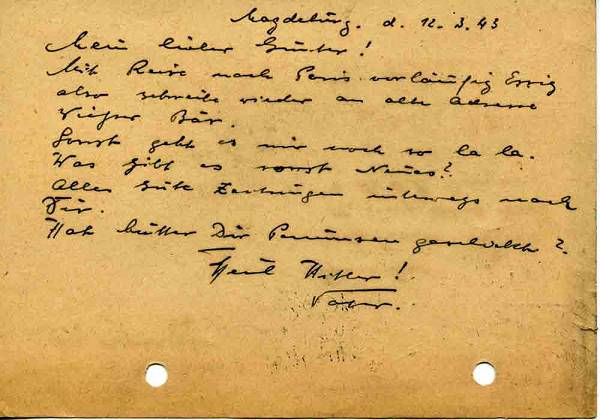 Magdeburg. d. 12.3.43
Mein lieber Günter!
Mit Reise nach Paris vorläufig Essig
also schreibe wieder an alte Adresse
Bär.
Sonst geht es mir noch so la la.
Was gibt es sonst Neues?
Alles Gute Zeitungen unterwegs nach
Dir.
Hat Mutter Dir geschickt?
Heil Hitler!
Vater.